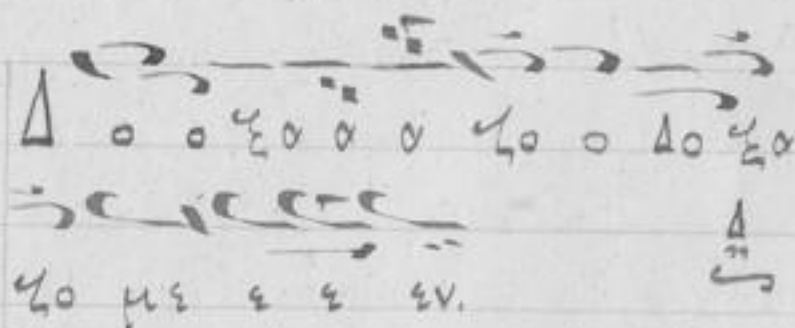 Δ ο ο ξα α α ζο ο Δο ξα
ζο με ε ε εν. Δ